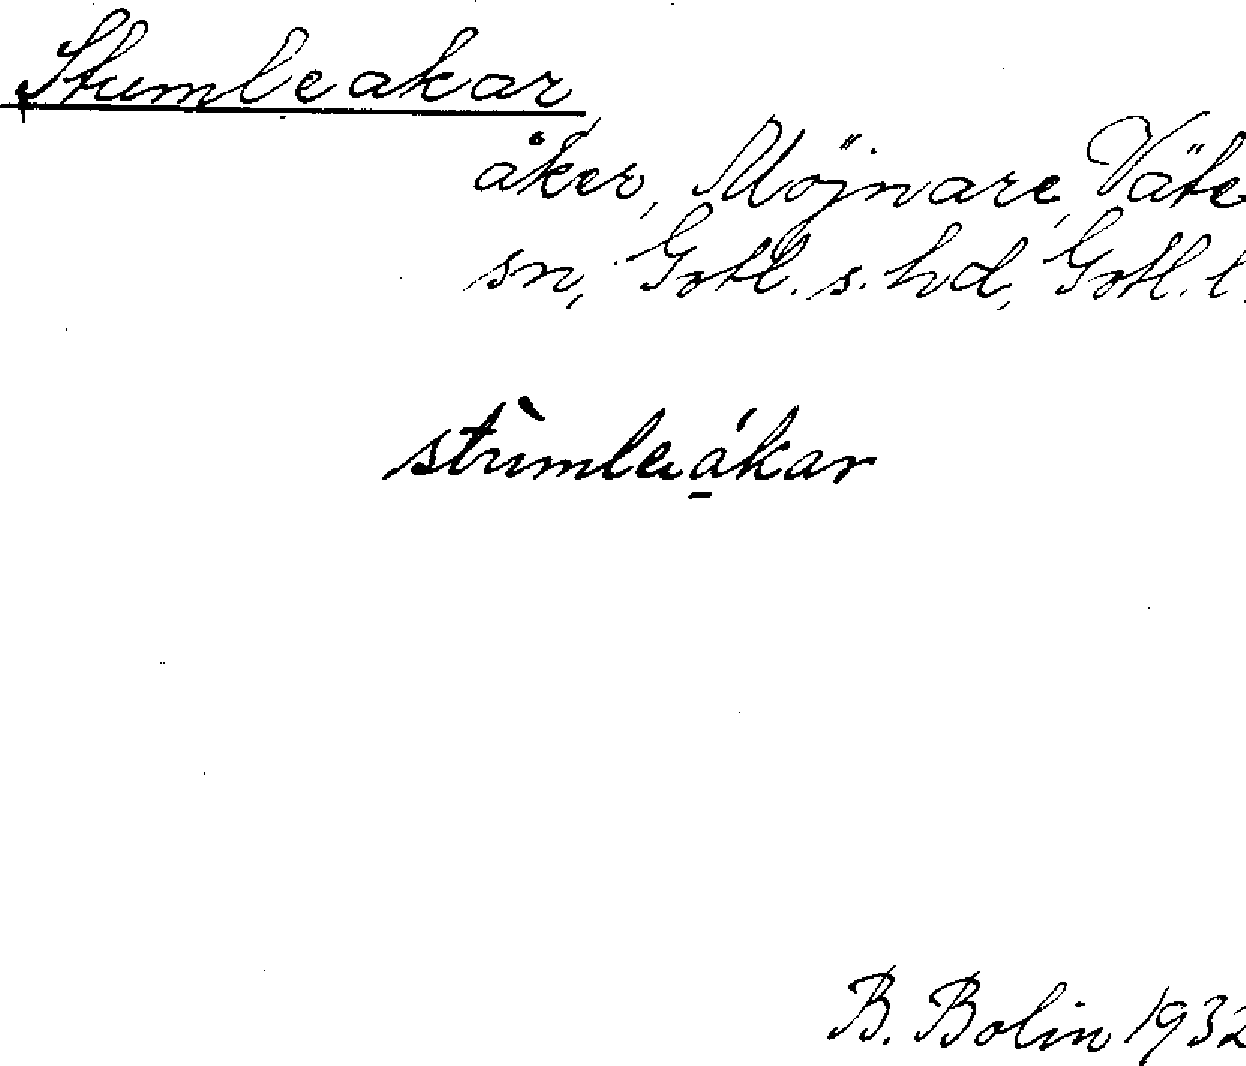 Stumleakar
åker, Möjnare, Väte
sn, Gotl. s. hd, Gotl. l.
stùmleákar
B. Bolin 1932